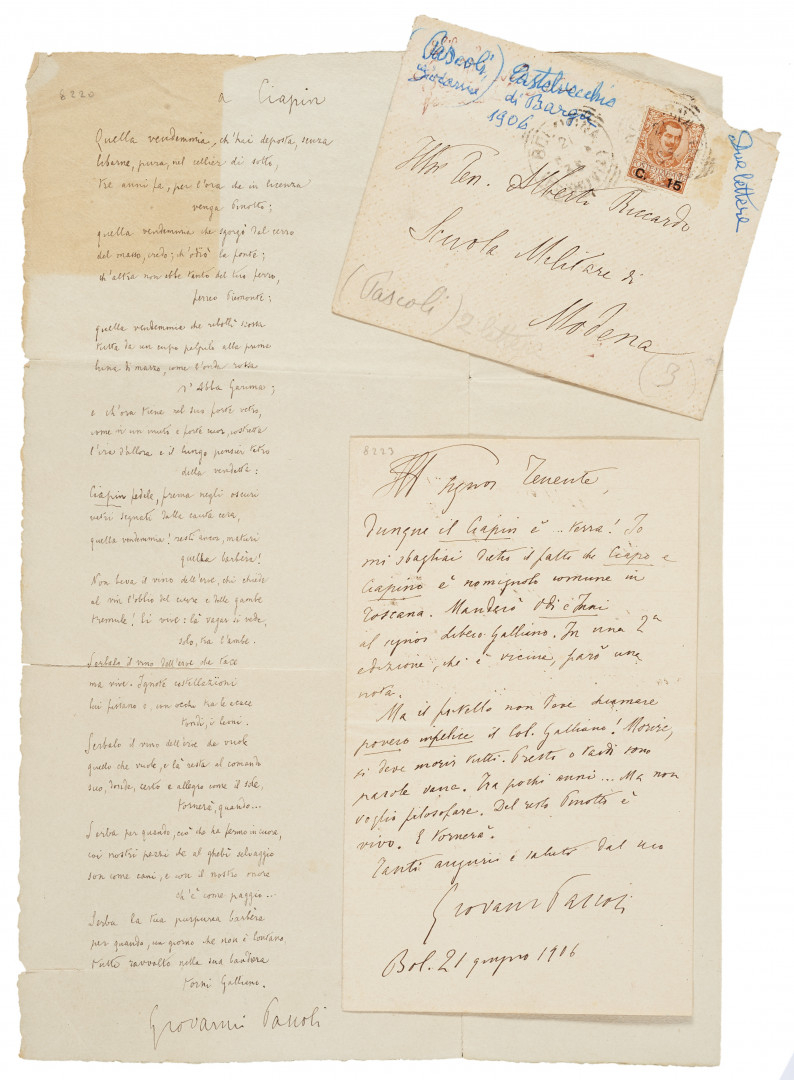 6220
a Ciapin
Quella vendemmia, ch'hai deposta, senza
libarne, pura, nel cellier di sotto,
tre anni fa, per l'ora che in licenza
venga Pinotto;
quella vendemmia che sgorgò dal cerro
del masso, credo; ch'odiò la fonte;
ch'altra non ebbe tanto del tuo ferro,
ferreo Piemonte;
quella vendemmia che ribollì rossa
tutta da un cupo palpito alla prima
luna di marzo, come l'onda rossa
d'Abba Garima;
e ch'ora tiene nel suo forte vetro,
come in un muto e forte cuor, costretta
l'ira d'allora e il lungo pensier tetro
della vendetta:
Ciapin fedele, prema negli oscuri
vetri segnati dalla cauta cera,
quella vendemmia! resti ancor, maturi
quella barbèra!
Non beva il vino dell'eroe, chi chiede
al vin l'oblio del cuore e delle gambe
tremule! Ei vive: là vagar si vede,
solo, tra l'ambe.
Serbalo il vino dell'eroe che tace
ma vive. Ignote costellazioni
lui fissano e, un occhio tra le acace
tondi, i leoni.
Serbalo il vino dell'eroe che vuole
quello che vuole, e là resta al comando
suo, donde, certo e allegro come il sole,
tornerà, quando...
Serba per quando, ciò che ha fermo in cuore,
coi nostri pezzi che al ghebì selvaggio
son come cani, e con il nostro onore
ch'è come paggio...
Serba la tua purpurea barbèra
per quando, un giorno che non è lontano,
tutto ravvolto nella sua bandiera
torni Galliano.
Giovanni Pascoli
(Pascoli, Giovanni) Castelvecchio
di Barga
1906
Due lettere
C. 15
Illmo Ten. Alberto Riccardo
Scuola Militare di
Modena
(Pascoli) 2 lettere
3
6223
Ill signor Tenente,
Dunque il Ciapin è .. terra! Io
mi sbagliai dietro il fatto che Ciapo e
Ciapino è nomignolo comune in
Toscana. Manderò Odi e Inni
al signor Galliano. In una 2a
edizione, che è vicina, farò una
nota.
Ma il fratello non deve chiamare
povero infelice il Col. Galliano! Morire,
si deve morir tutti. Presto o tardi sono
parole vane. Tra pochi anni... Ma non
voglio filosofare. Del resto Pinotto è
vivo. E tornerà.
Tanti auguri e saluti dal suo
Giovanni Pascoli
Bol. 21 giugno 1906